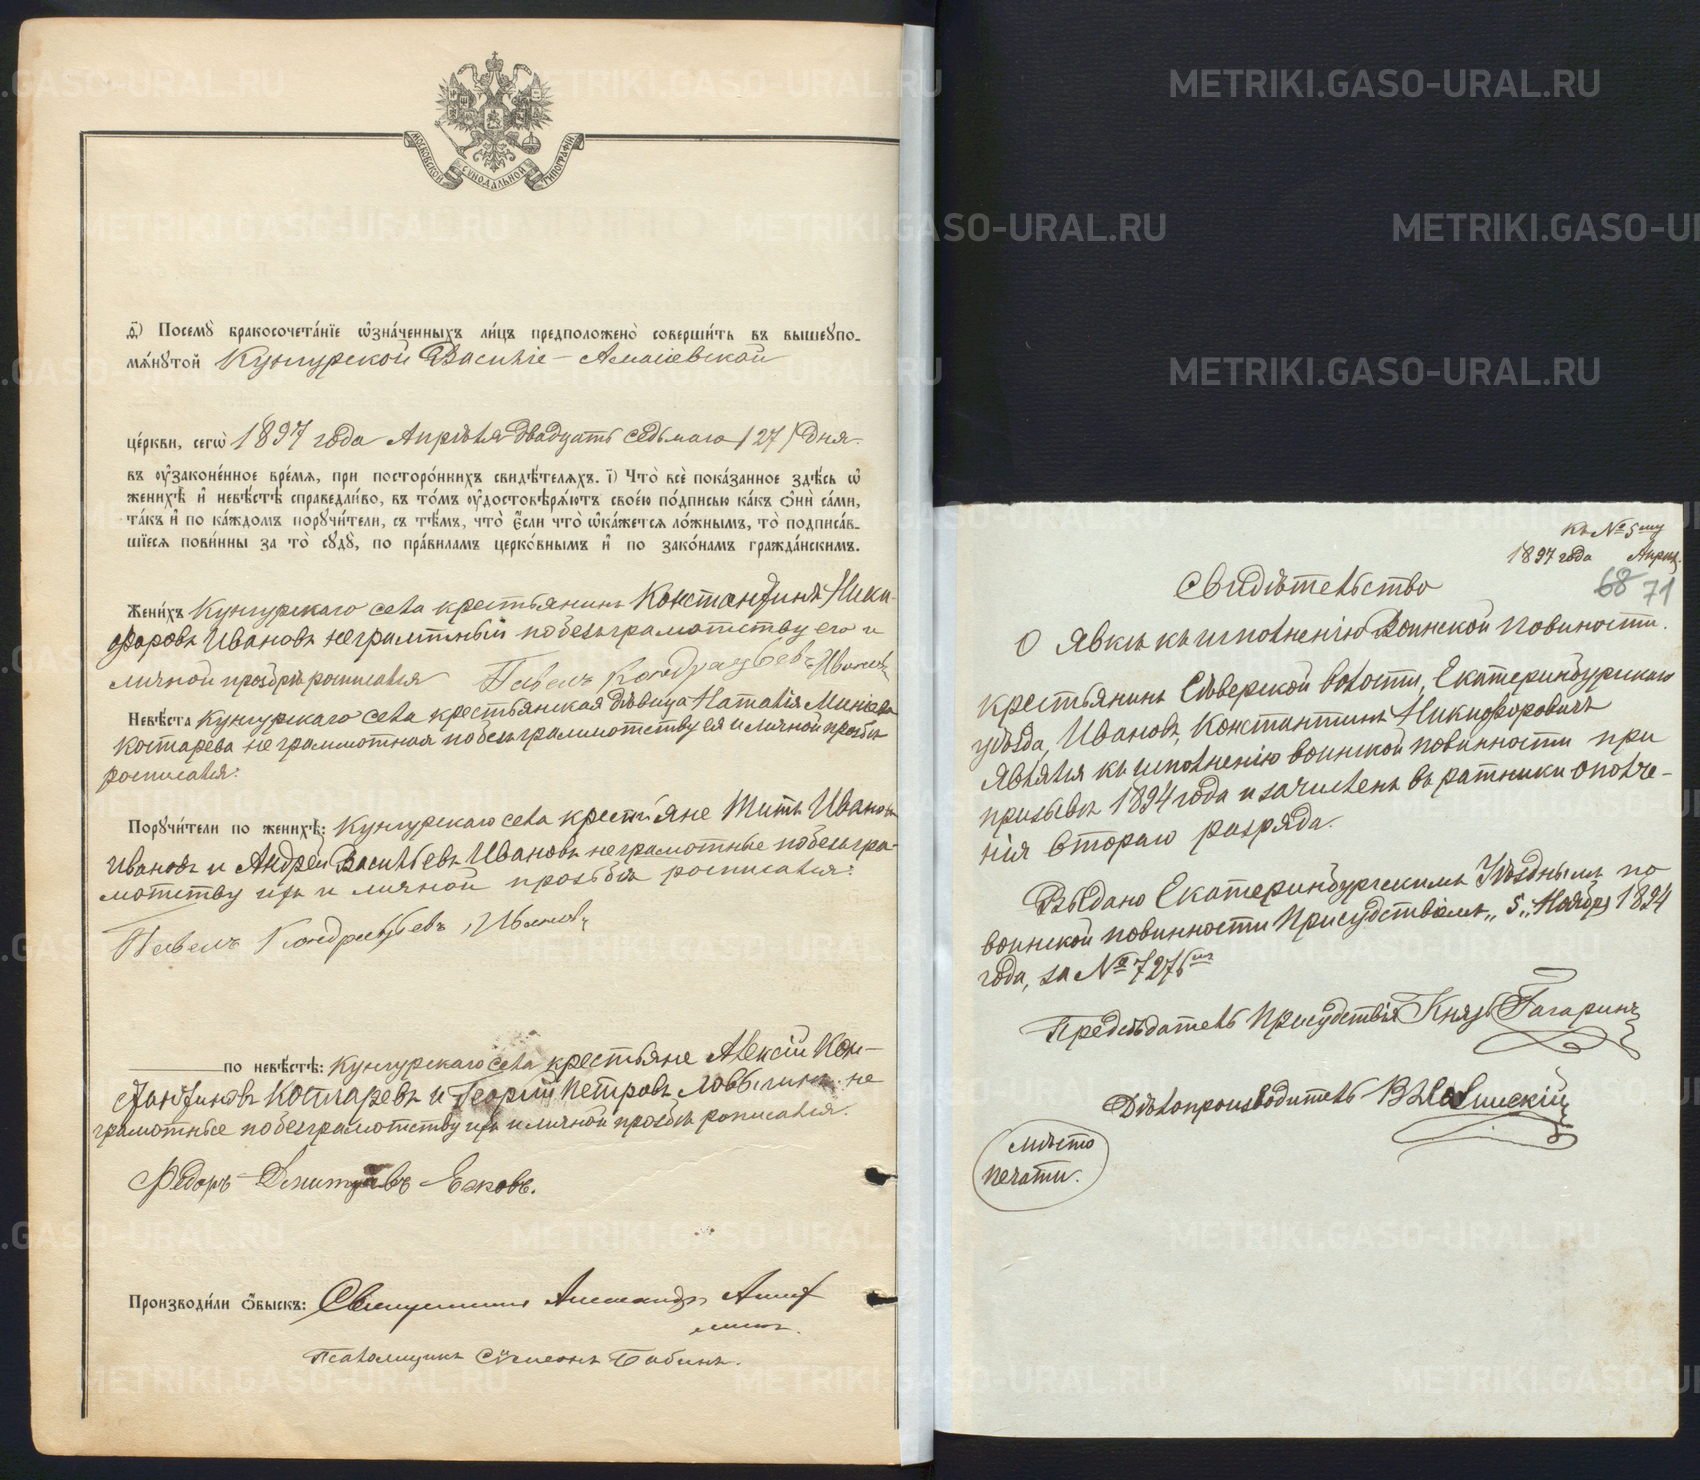 МОСКОВСКОЙ СѴНОДАЛЬНОЙ ТИПОГРАФІИ
ѳ҃) Посемꙋ̀ бракосочета́нїе ѡ҆зна́ченныхъ ли́цъ предположено̀ соверши́ть въ вышеꙋпо-
мѧ́нꙋтой Кунгурской Василіе-Амасіевской
це́ркви, сегѡ̀ 1897 года Апрѣля двадцать седьмаго /27/ дня
въ ᲂу҆зако́ненное вре́мѧ, при посторо́ннихъ свидѣ́телѧхъ. і҃) Что̀ всѐ пока́занное здѣ́сь ѡ҆
женихѣ̀ и҆ невѣ́стѣ справедли́во, въ то́мъ ᲂу҆достовѣрѧ́ютъ свое́ю по́дписью ка́къ ѻ҆нѝ са́ми,
та́къ и҆ по ка́ждомъ порꙋчи́тели, съ тѣ́мъ, что̀ є҆́сли что̀ ѡ҆ка́жетсѧ ло́жнымъ, то̀ подписа́в-
шїесѧ пови́нны за то̀ сꙋдꙋ̀, по пра́виламъ церко́внымъ и҆ по зако́намъ гражда́нскимъ.
Жени́хъ Кунгурскаго села крестьянинъ Константинъ Ники-
форовъ Ивановъ неграмтный по безъграмотству его и
личной прозбѣ росписался Павелъ Кондратьевъ Ивановъ
Невѣ́ста Кунгурскаго села крестьянская дѣвица Наталія Минаева
Костарева не граммотная по безъграммотству ея и личной прозбѣ
росписался:
Порꙋчи́тели по женихѣ̀: Кунгурскаго села крестьяне Титъ Ивановъ
Ивановъ и Андрей Васильевъ Ивановъ неграмотные по безъгра-
мотству ихъ и личной прозьбѣ росписался:
Павелъ Кондратьевъ Ивановъ
по невѣ́стѣ: Кунгурскаго села крестьяне Алексій Кон-
стантиновъ Костаревъ и Георгій Петровъ не
грамотные по безграмотству ихъ и личной прозьбѣ росписался.
Ѳедоръ Ежовъ.
Производи́ли ѻ҆́быскъ: Священникъ Александръ
Псаломщикъ Сѵмеонъ Бабинъ.
Къ № 5му
1897 года Апрѣл.
68 71
Свидѣтельство
О явкѣ къ исполненію Воинской повиности.
Крестьянинъ Сѣверской волости, Екатеринбургскаго
уѣзда, Ивановъ, Константинъ Никифоровичъ
являлся къ исполненію воинской повинности при
призывѣ 1894 года и зачисленъ въ ратники ополче-
нія втораго разряда.
Выдано Екатеринбургскимъ Уѣзднымъ по
воинской повинности Присудствіемъ „5„ Ноября 1894
года, за № 7276мъ
Предсѣдатель Присудствія Князь Гагаринъ
Дѣлопроизводитель
мѣсто
печати.
METRIKI.GASO-URAL.RU